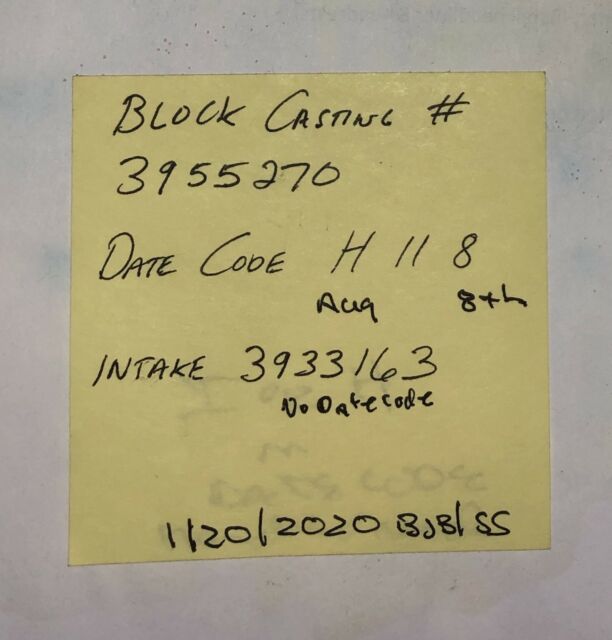 BLOCK CASTING #
3955270
DATE CODE H 11 8
Aug 8th
INTAKE 3933163
No Date code
1/20/2020 BJB/SS